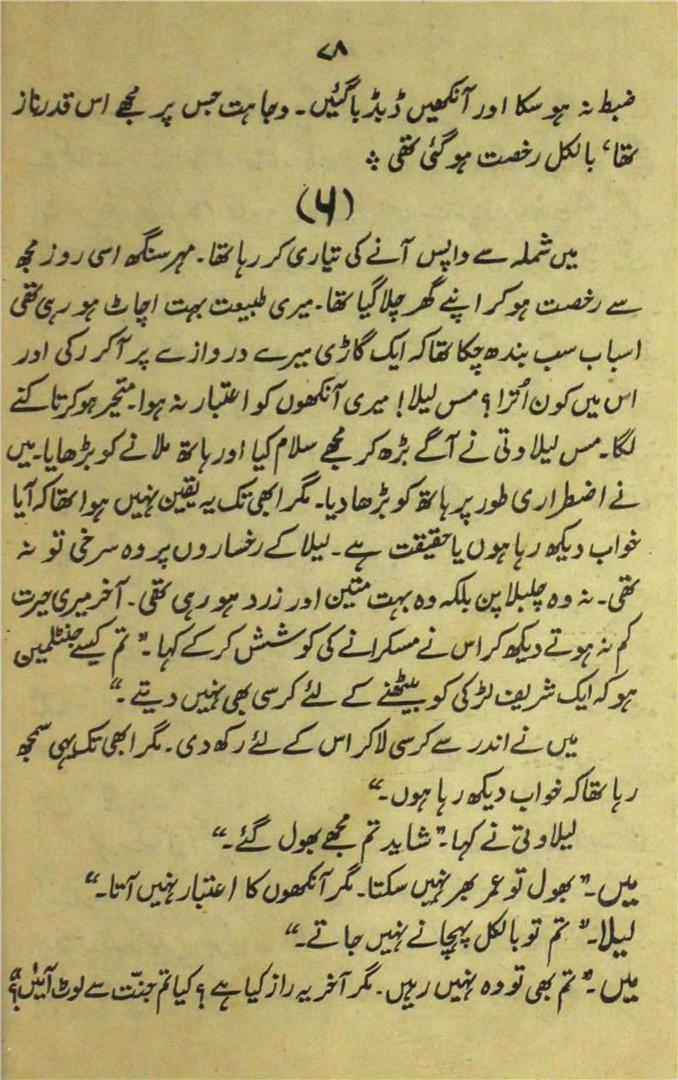 ۷۸
ضبط نہ ہو سکا اور آنکھیں ڈبڈبا گئیں۔ وجاہت جس پر مجھے اس قدر ناز
تھا، بالکل رخصت ہو گئی تھی ؞
(۶)
میں شملہ سے واپس آنے کی تیاری کر رہا تھا۔ مہر سنگھ اسی روز مجھ
سے رخصت ہو کر اپنے گھر چلا گیا تھا۔ میری طبیعت بہت اچاٹ ہو رہی تھی
اسباب سب بندھ چکا تھا کہ ایک گاڑی میرے دروازے پر آکر رکی اور
اس میں کون اُترا؟ مس لیلا! میری آنکھوں کو اعتبار نہ ہوا۔ متحیر ہو کر تاکنے
لگا۔ مس لیلا وتی نے آگے بڑھ کر مجھے سلام کیا اور ہاتھ ملانے کو بڑھایا۔ میں
نے اضطراری طور پر ہاتھ کو بڑھا دیا۔ مگر ابھی تک یہ یقین نہیں ہوا تھا کہ آیا
خواب دیکھ رہا ہوں یا حقیقت ہے۔ لیلا کے رخساروں پر وہ سرخی تو نہ
تھی۔ نہ وہ چلبلا پن بلکہ وہ بہت متین اور زرد ہو رہی تھی۔ آخر میری حیرت
کم نہ ہوتے دیکھ کر اس نے مسکرانے کی کوشش کر کے کہا۔ ”تم کیسے جنٹلمین
ہو کہ ایک شریف لڑکی کو بیٹھنے کے لئے کرسی بھی نہیں دیتے۔“
میں نے اندر سے کرسی لا کر اس کے لئے رکھ دی۔ مگر ابھی تک یہی سمجھ
رہا تھا کہ خواب دیکھ رہا ہوں۔“
لیلا وتی نے کہا۔ ”شاید تم مجھے بھول گئے۔“
میں۔ ”بھول تو عمر بھر نہیں سکتا۔ مگر آنکھوں کا اعتبار نہیں آتا۔“
لیلا۔ ”تم تو بالکل پہچانے نہیں جاتے۔“
میں۔ ”تم بھی تو وہ نہیں رہیں۔ مگر آخر یہ راز کیا ہے؟ کیا تم جنّت سے لوٹ آئیں؟“